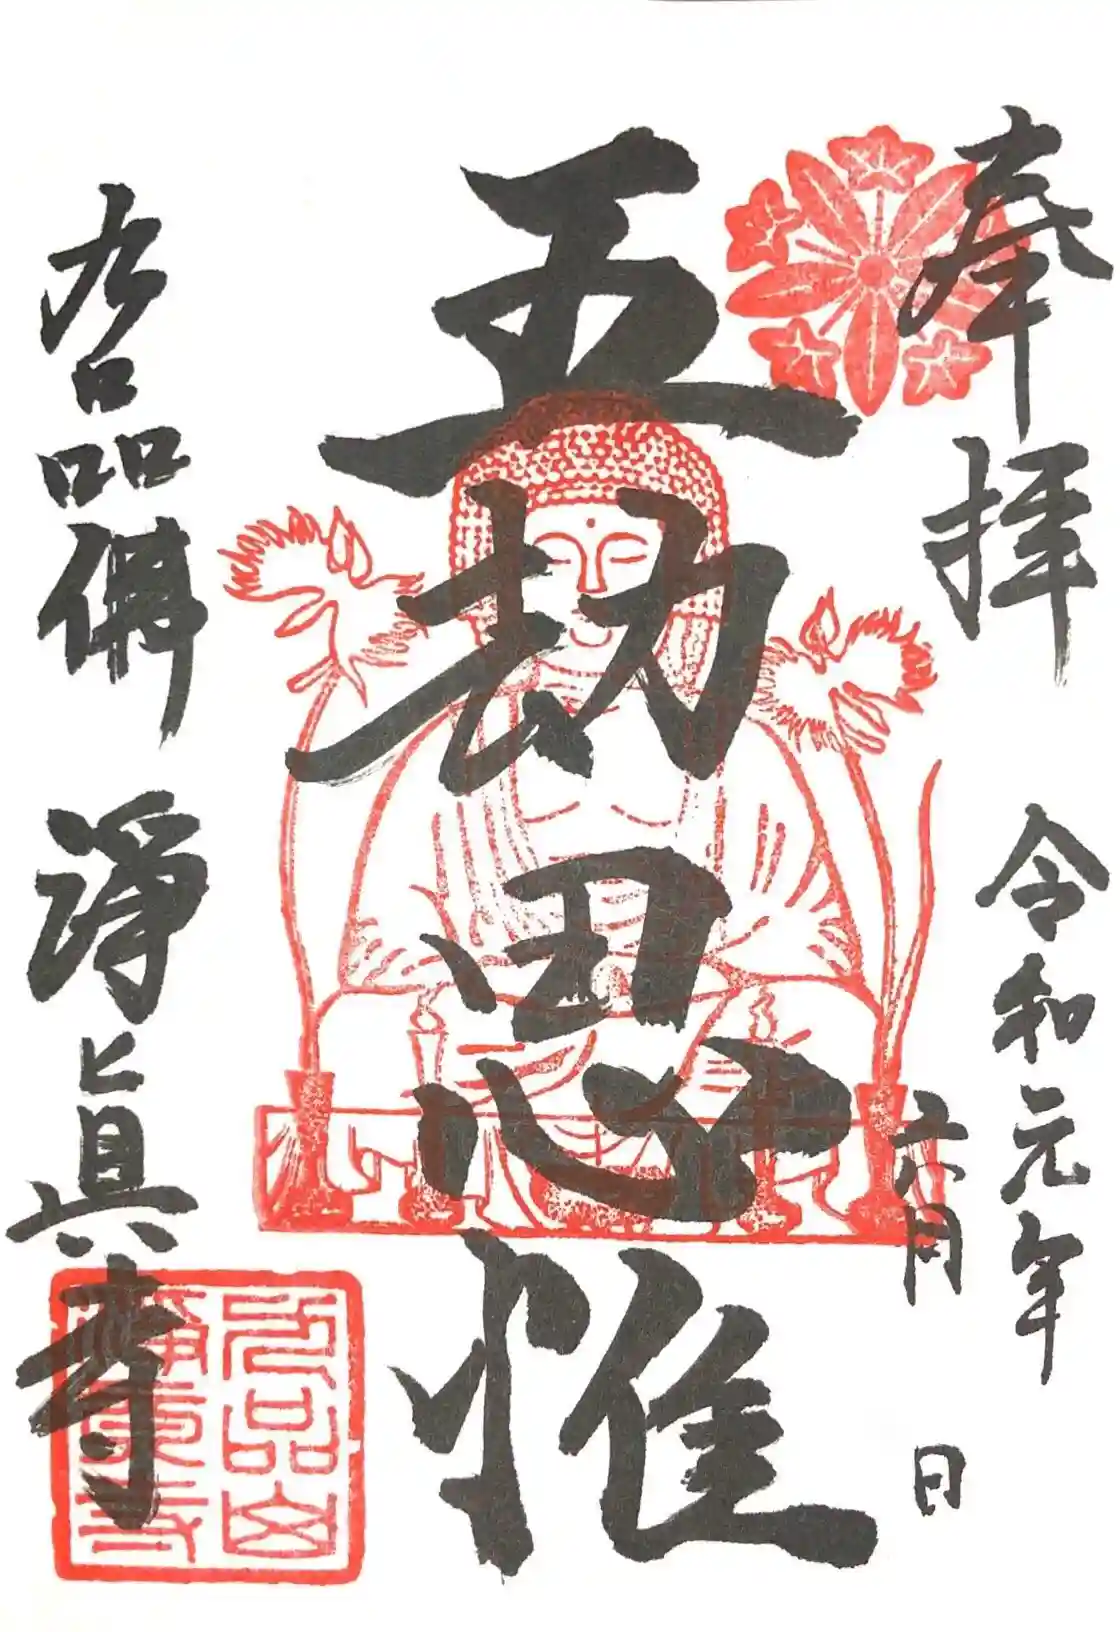 奉拝
令和元年
六月 日
五劫思惟
九品佛 淨眞寺
九品山
淨真寺